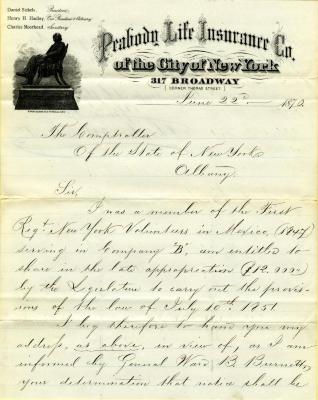 Daniel Sickels, President,
Henry B. Hadley, Vice President & Attorney
Charles Moorhead, Secretary
Peabody Life Insurance Co.
of the City of New York
317 BROADWAY
CORNER THOMAS STREET
June 22d 1872
The Comptroller
Of the State of New York
Albany.
Sir,
I was a member of the First
Regt New York Volunteers in Mexico, (1847)
serving in Company "B", am entitled to
share in the late appropriation
by the Legislature to carry out the provis-
ions of the law of July 10th 1851
I beg therefore to hand you my
address, as above, in view of, as I am
informed by General Ward B. Burnett,
your determination that notice shall be